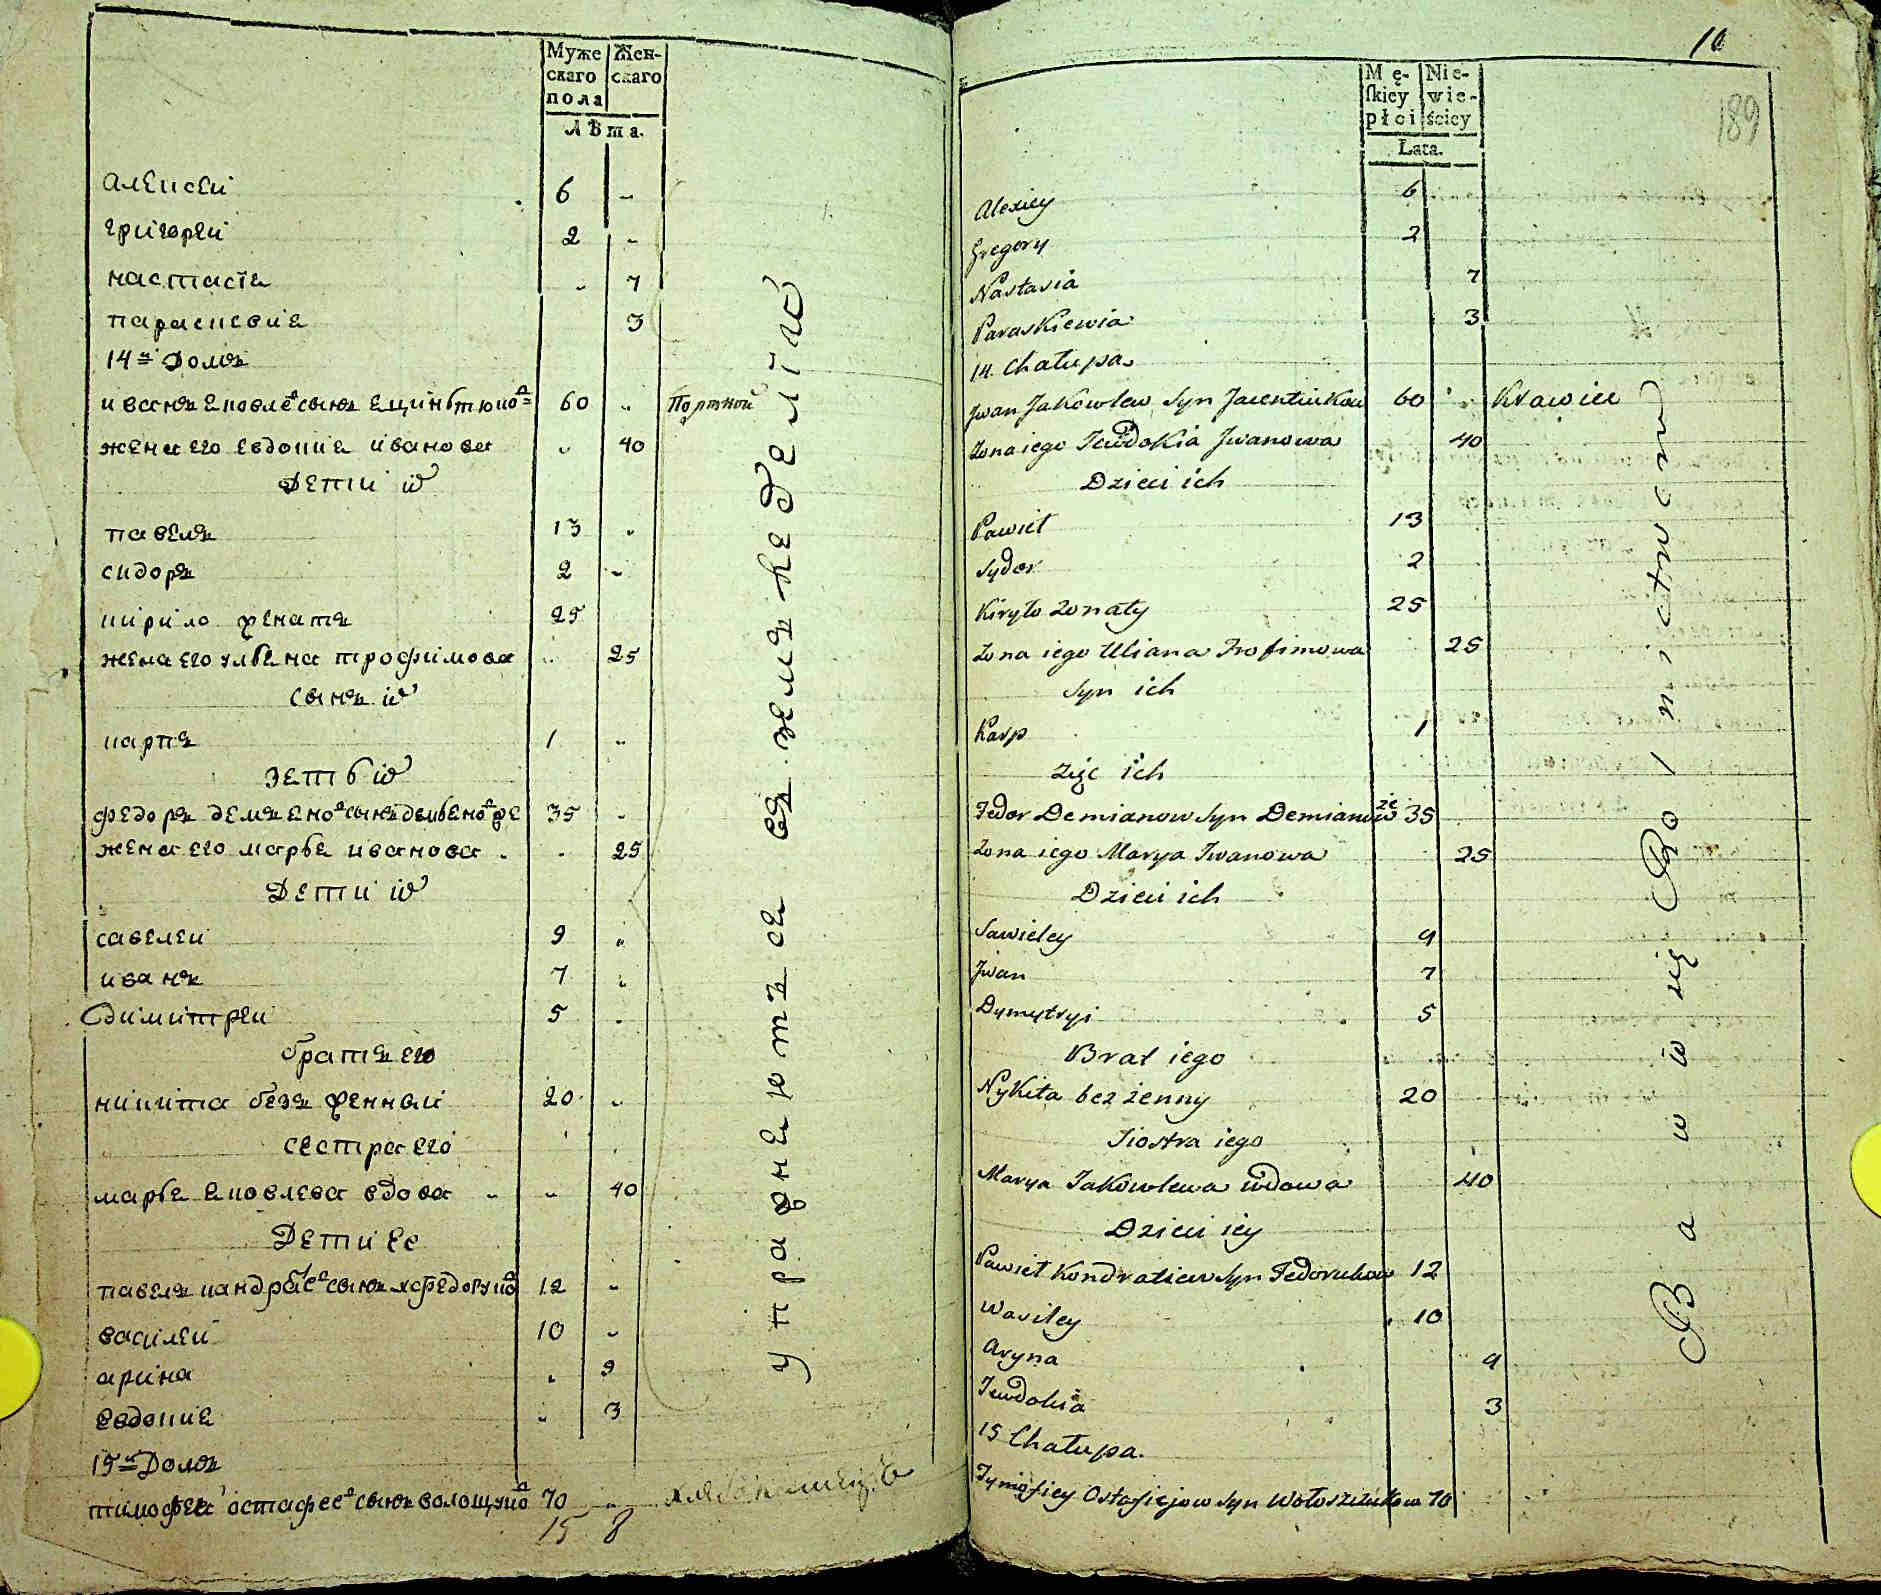 Муже
скаго
пола
Жен-
скаго
Лѣта.
алексеи 6 "
григореи 2 "
настасiя " 7
парасковия 3
14й Домъ
иванъ яковлевъ сынъ яцинтюковъ 60 " Портной
жена его евдокия иванова " 40
Дети их
павелъ 13 "
сидоръ 2 "
кирило женатъ 25
жена его ульяна трофимова " 25
сынъ их
карпъ 1 "
зеть их
федоръ демяновъ сынъ демьяновже 35 "
жена его марья иванова " 25
Дети их
савелеи 9 "
иванъ 7 "
димитреи 5 "
братъ его
никита безъ женнои 20 "
сестра его
марья яковлева вдова " " 40
Дети ее
павелъ кандратевъ сынъ федоруковъ 12 "
василеи 10 "
арина " 9
евдокия " 3
15й Домъ
тимофеи остафеевъ сынъ волощуковъ 70 "
15 8
упражняютъся въ земледелiи
10
189
Mę-
skiey
płci
Nie-
wie-
ściey
Lata.
Alexiey 6
Gregory 2
Nastasia 7
Paraskiewia 3
14. Chałupa
Jwan Jakowlew Syn Jacentiukow 60 " Krawiec
Zona iego Jewdokia Jwanowa 40
Dzieci ich
Pawieł 13
Sydor 2
Kiryło Zonaty 25
Zona iego Uliana Trofimowa 25
Syn ich
Karp 1
Zięc ich
Fedor Demianow Syn Demianowże 35
Zona iego Marya Jwanowa 25
Dzieci ich
Sawieley 9
Jwan 7
Dymytryi 5
Brat iego
Nykita bez żenny 20
Siostra iego
Marya Jakowlewa wdowa 40
Dzieci iey
Pawieł Kondratiew Syn Fedorukow 12
Wasiley 10
Aryna 9
Jewdokia 3
15 Chałupa.
Tymofiey Ostafiejow Syn Wołoszczukow 70
Bawią się Rolnictwem